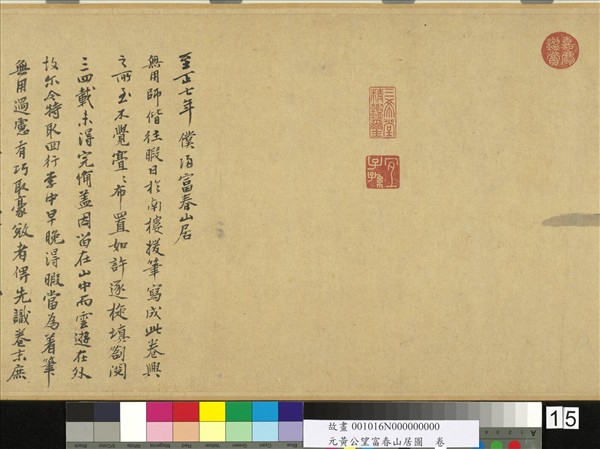 嘉慶鑑賞
三希堂精鑑璽
宜子孫
至正七年僕歸富春山居
無用師偕往暇日於南樓援筆寫成此卷興
之所至不覺亹〻布置如許逐旋填劄閱
三四載未得完備蓋因留在山中而雲遊在外
故尔今特取回行李中早晚得暇當為着筆
無用過慮有巧取豪敚者俾先識卷末庶
故畫 001016N000000000
元黃公望富春山居圖 卷
15